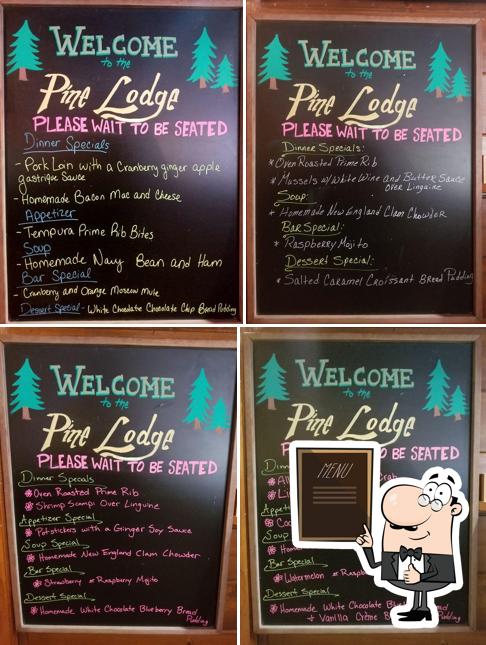 WELCOME
to the
Pine Lodge
PLEASE WAIT TO BE SEATED
Dinner Specials
- Pork Loin with a Cranberry ginger apple
gastrique Sauce
- Homemade Bacon Mac and Cheese
Appetizer
- Tempura Prime Rib Bites
Soup
- Homemade Navy Bean and Ham
Bar Special
- Cranberry and Orange Moscow Mule
Dessert Special - White Chocolate Chocolate Chip Bread Pudding
WELCOME
to the
Pine Lodge
PLEASE WAIT TO BE SEATED
Dinner Specials:
* Oven Roasted Prime Rib
* Mussels w/ White Wine and Butter Sauce
over Linguine
Soup:
* Homemade New England Clam Chowder
Bar Special:
* Raspberry Mojito
Dessert Special:
* Salted Caramel Croissant Bread Pudding
WELCOME
to the
Pine Lodge
PLEASE WAIT TO BE SEATED
Dinner Specials
* Oven Roasted Prime Rib
* Shrimp Scampi Over Linguine
Appetizer Special
* Potstickers with a Ginger Soy Sauce
Soup Special
* Homemade New England Clam Chowder
Bar Special
* Strawberry * Raspberry Mojito
Dessert Special
* Homemade White Chocolate Blueberry Bread
Pudding
WELCOME
to the
Pine Lodge
PLEASE WAIT TO BE SEATED
Crab
MENU
Soup
Bar Special
* Watermelon
Dessert Special
* Homemade White Chocolate
+ Vanilla Crème
Pudding